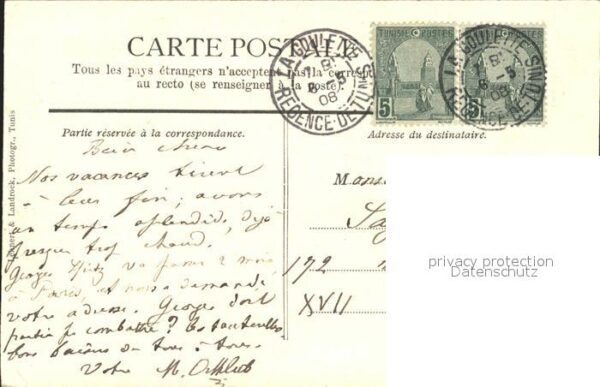 CARTE POSTALE
Tous les pays étrangers n'acceptent pas la corresp
au recto (se renseigner à la poste).
TUNISIE POSTES
TUNISIE POSTES
5
5
LA GOULETTE
RÉGENCE DE TUNIS
6 -5
08
LA GOULETTE
RÉGENCE DE TUNIS
6 -5
08
Partie réservée à la correspondance.
Adresse du destinataire.
Lehnert & Landrock, Photogr., Tunis
Nos vacances tirent
à leur fin; avons
un temps splendide, déjà
presque trop chaud.
Georges va passer 2 mois
à Paris, et nous a demandé
votre adresse. Georges doit
partir se combattre?
bons baisers de tous à tous.
Votre M.
Monsi
172
XVII
privacy protection
Datenschutz